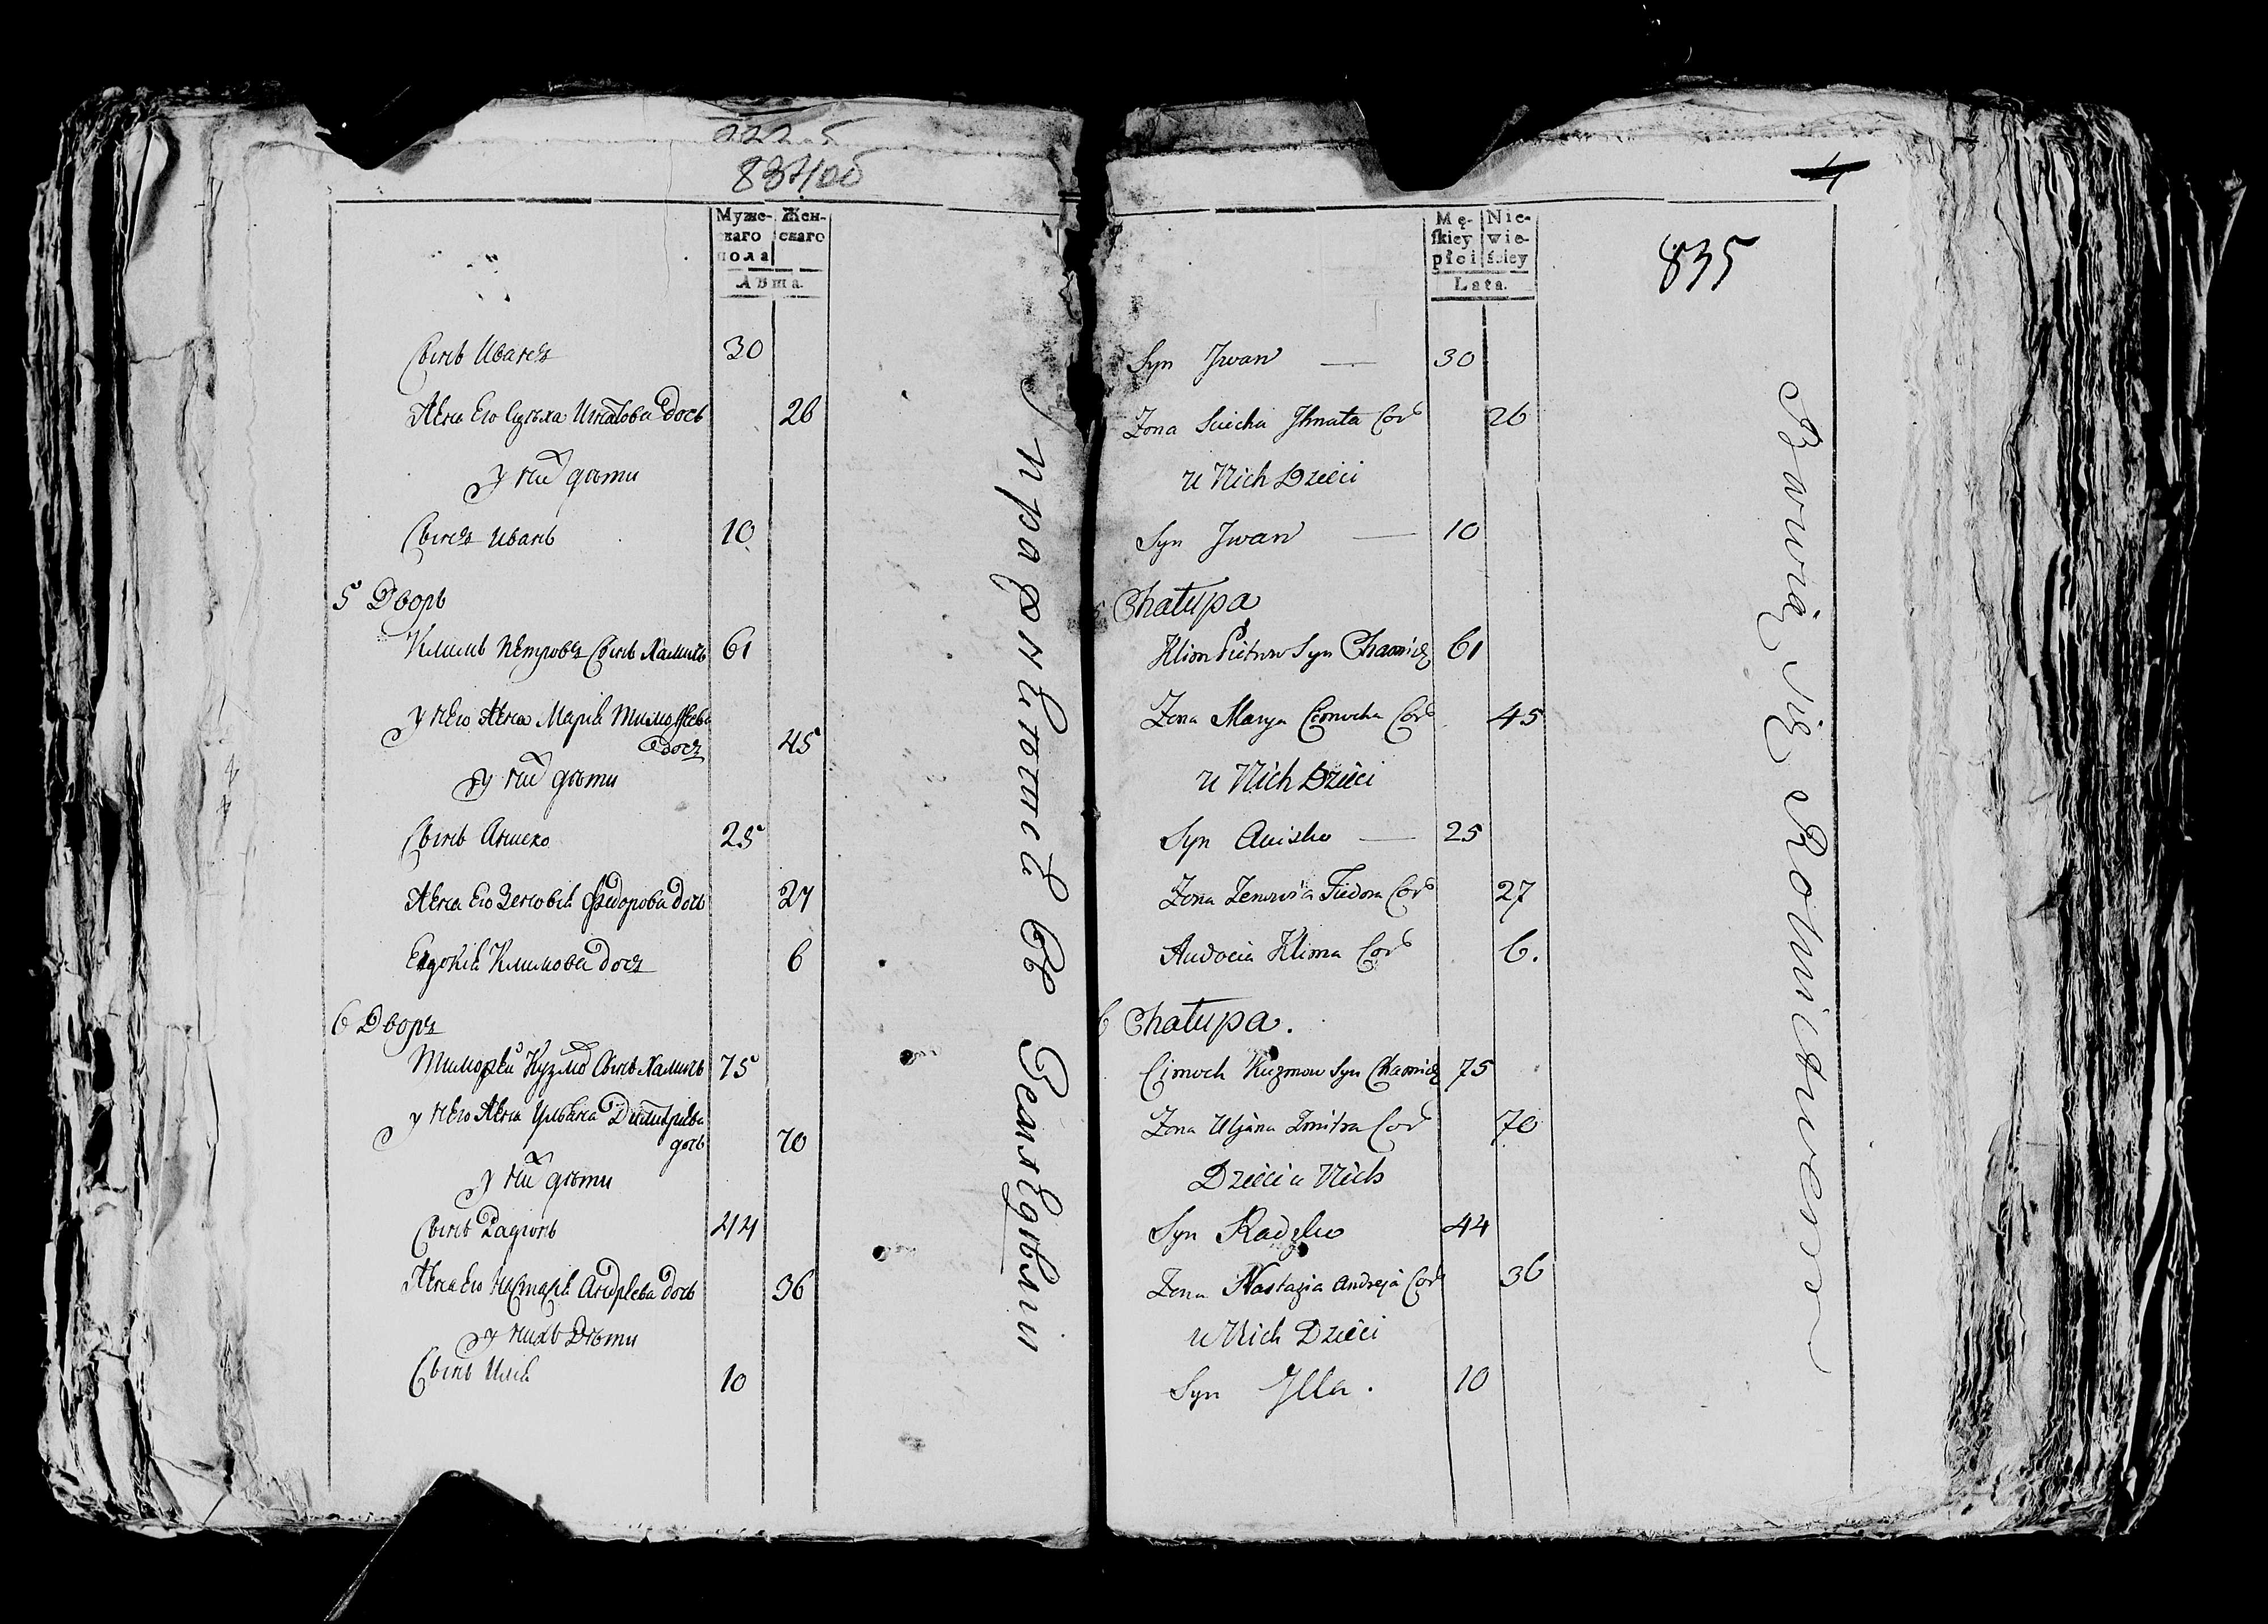 834
Муже-
скаго
пола
Жен-
скаго
Лѣта.
Сынъ Иванъ 30
Жена Его Суѣха Игнатова дочь 26
у них дѣти
Сынъ Иванъ 10
5 Дворъ
Климъ Петровъ Сынъ Хамичъ 61
у него Жена Марія Тимофеева
дочь 45
у них дѣти
Сынъ Аниско 25
Жена Его Зеновія Федорова дочь 27
Евдокія Климова дочь 6
6 Дворъ
Тимофей Кузмовъ Сынъ Хамичъ 75
у него Жена Ульяна Димитріева
дочь 70
у них дѣти
Сынъ Радіонъ 44
Жена Его Настасія Андреева дочь 36
у нихъ Дѣти
Сынъ Илія 10
Упражняются въ Земледѣліи
4
835
Mę-
skiey
płci
Nie-
wie-
ściey
Lata.
Syn Jwan — 30
Zona Sciecha Jhnata Cor 26
u Nich Dzieci
Syn Jwan — 10
5 Chatupa
Klim Pietrow Syn Chamicz 61
Zona Marya Cimocha Cor 45
u Nich Dzieci
Syn Anisko — 25
Zona Zenowia Fiedora Cor 27
Audocia Klima Cor 6.
6 Chatupa.
Cimoch Kuzmow Syn Chamicz 75
Zona Uljana Zmitra Cor 70
Dzieci u Nich
Syn Radzko 44
Zona Nastazia Andreja Cor 36
u Nich Dzieci
Syn Jlla. 10
Bawią się Rolnictwem